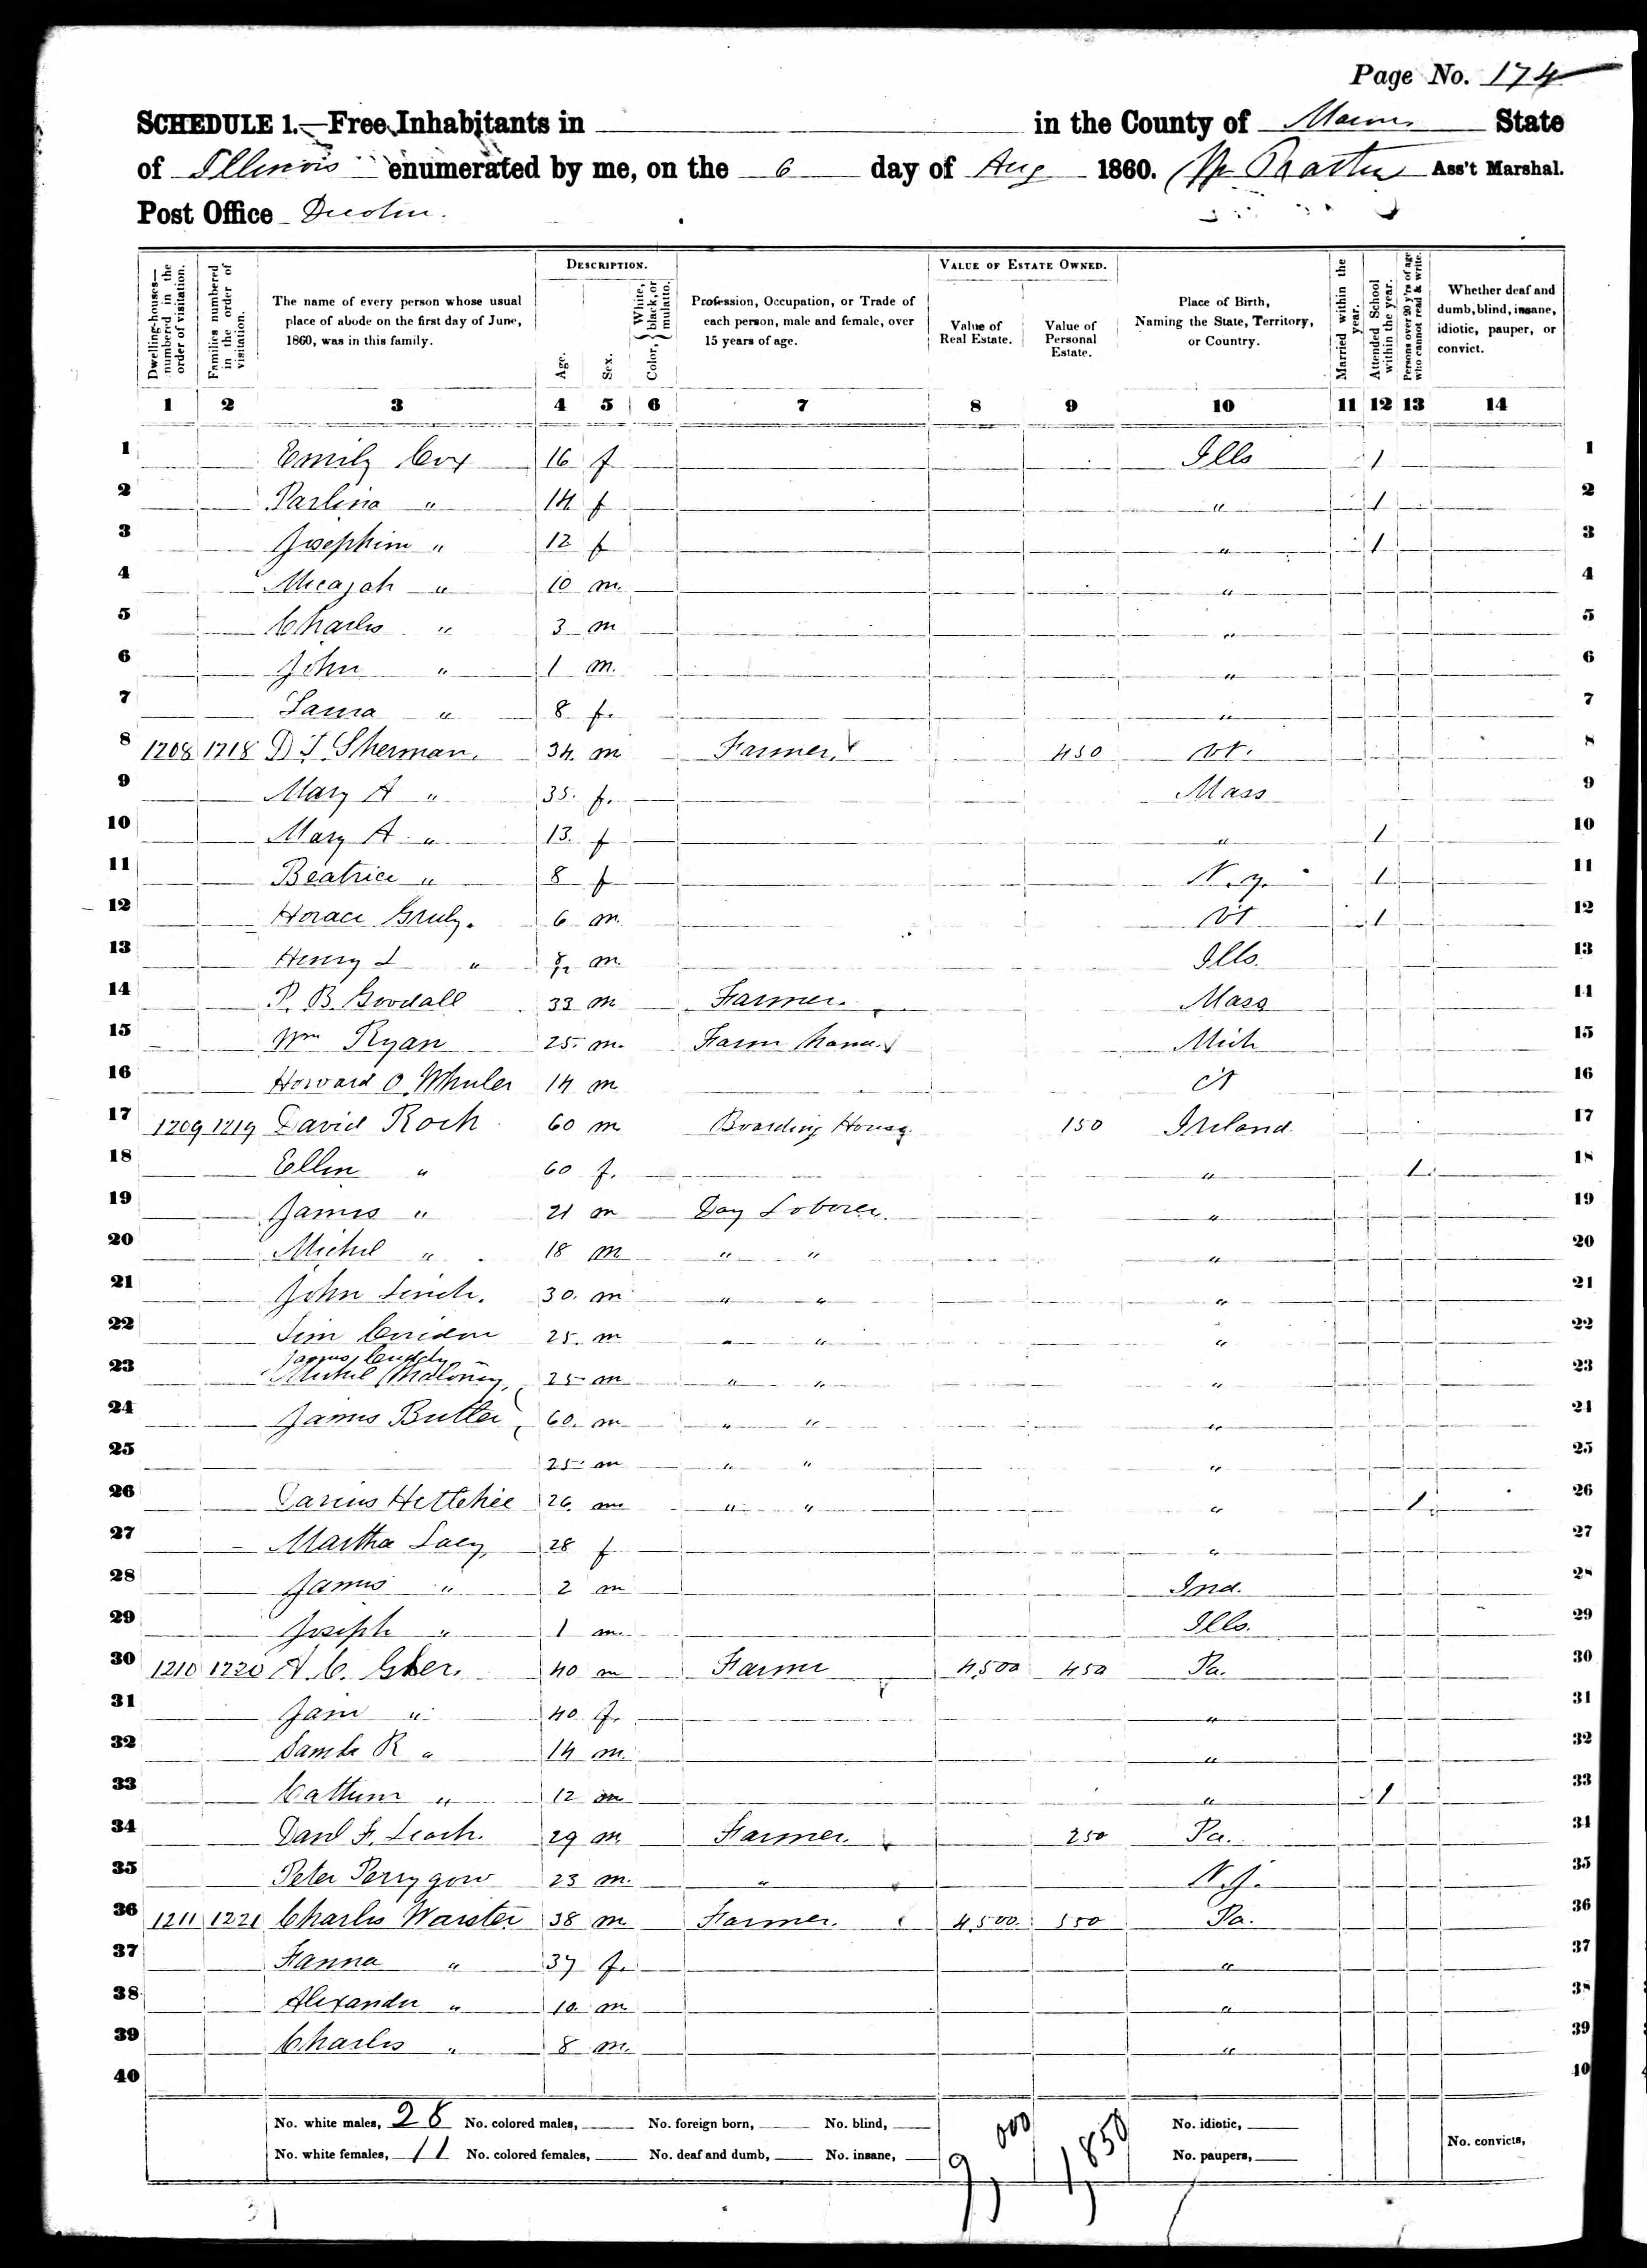 Page No. 174
SCHEDULE 1.—Free Inhabitants in in the County of Macon State
of Illinois enumerated by me, on the 6 day of Aug 1860. Ass't Marshal.
Post Office
Dwelling-houses—numbered in the order of visitation.
Families numbered in the order of visitation.
The name of every person whose usual place of abode on the first day of June, 1860, was in this family.
DESCRIPTION.
Age.
Sex.
Color, { White, black, or mulatto.
Profession, Occupation, or Trade of each person, male and female, over 15 years of age.
VALUE OF ESTATE OWNED.
Value of Real Estate.
Value of Personal Estate.
Place of Birth, Naming the State, Territory, or Country.
Married within the year.
Attended School within the year.
Persons over 20 y'rs of age who cannot read & write.
Whether deaf and dumb, blind, insane, idiotic, pauper, or convict.
1 2 3 4 5 6 7 8 9 10 11 12 13 14
1 Emily Cox 16 f Ills 1 1
2 Parlina " 14 f " 1 2
3 Josephine " 12 f " 1 3
4 Micajah " 10 m. " 4
5 Charles " 3 m " 5
6 John " 1 m. " 6
7 Laura " 8 f. " 7
8 1208 1218 D T. Sherman. 34. m Farmer. 450 Vt. 8
9 Mary A " 35. f. Mass 9
10 Mary A. " 13. f " 1 10
11 Beatrice " 8 f N.y. 1 11
12 Horace Gruly. 6 m. Vt 1 12
13 Henry L " 8/12 m. Ills. 13
14 P. B. Goodall 33 m Farmer. Mass 14
15 Wm Ryan 25. m. Farm Mich 15
16 Howard O. Whuler 14 m Ct 16
17 1209 1219 David Roch 60 m Boarding House 150 Ireland. 17
18 Ellen " 60 f. " 1 18
19 James " 21 m Day Laborer. " 19
20 Michel " 18 m " " " 20
21 John Linch. 30. m " " " 21
22 Tim 25. m " " " 22
James Cuddy
23 Michel Maloney, 25 m " " " 23
24 James Butler 60. m " " " 24
25 25. m " " " 25
26 Darius 26. m " " " 1 26
27 Martha Lacy, 28 f " 27
28 James " 2 m Ind. 28
29 Joseph " 1 m. Ills. 29
30 1210 1220 A. C. 40 m Farmer 4,500 450 Pa. 30
31 Jane " 40 f. " 31
32 R " 14 m. " 32
33 " 12 m " 1 33
34 Danl F. Leach. 29 m. Farmer. 250 Pa. 34
35 Peter Perrygow 23 m. " N.J. 35
36 1211 1221 Charles Warster 38 m Farmer. 4,500. 550 Pa. 36
37 Fanna " 37 f. " 37
38 Alexander " 10. m " 38
39 Charles " 8 m. " 39
40 40
No. white males, 28 No. colored males, No. foreign born, No. blind, 9,000 1,850 No. idiotic,
No. white females, 11 No. colored females, No. deaf and dumb, No. insane, No. paupers, No. convicts,